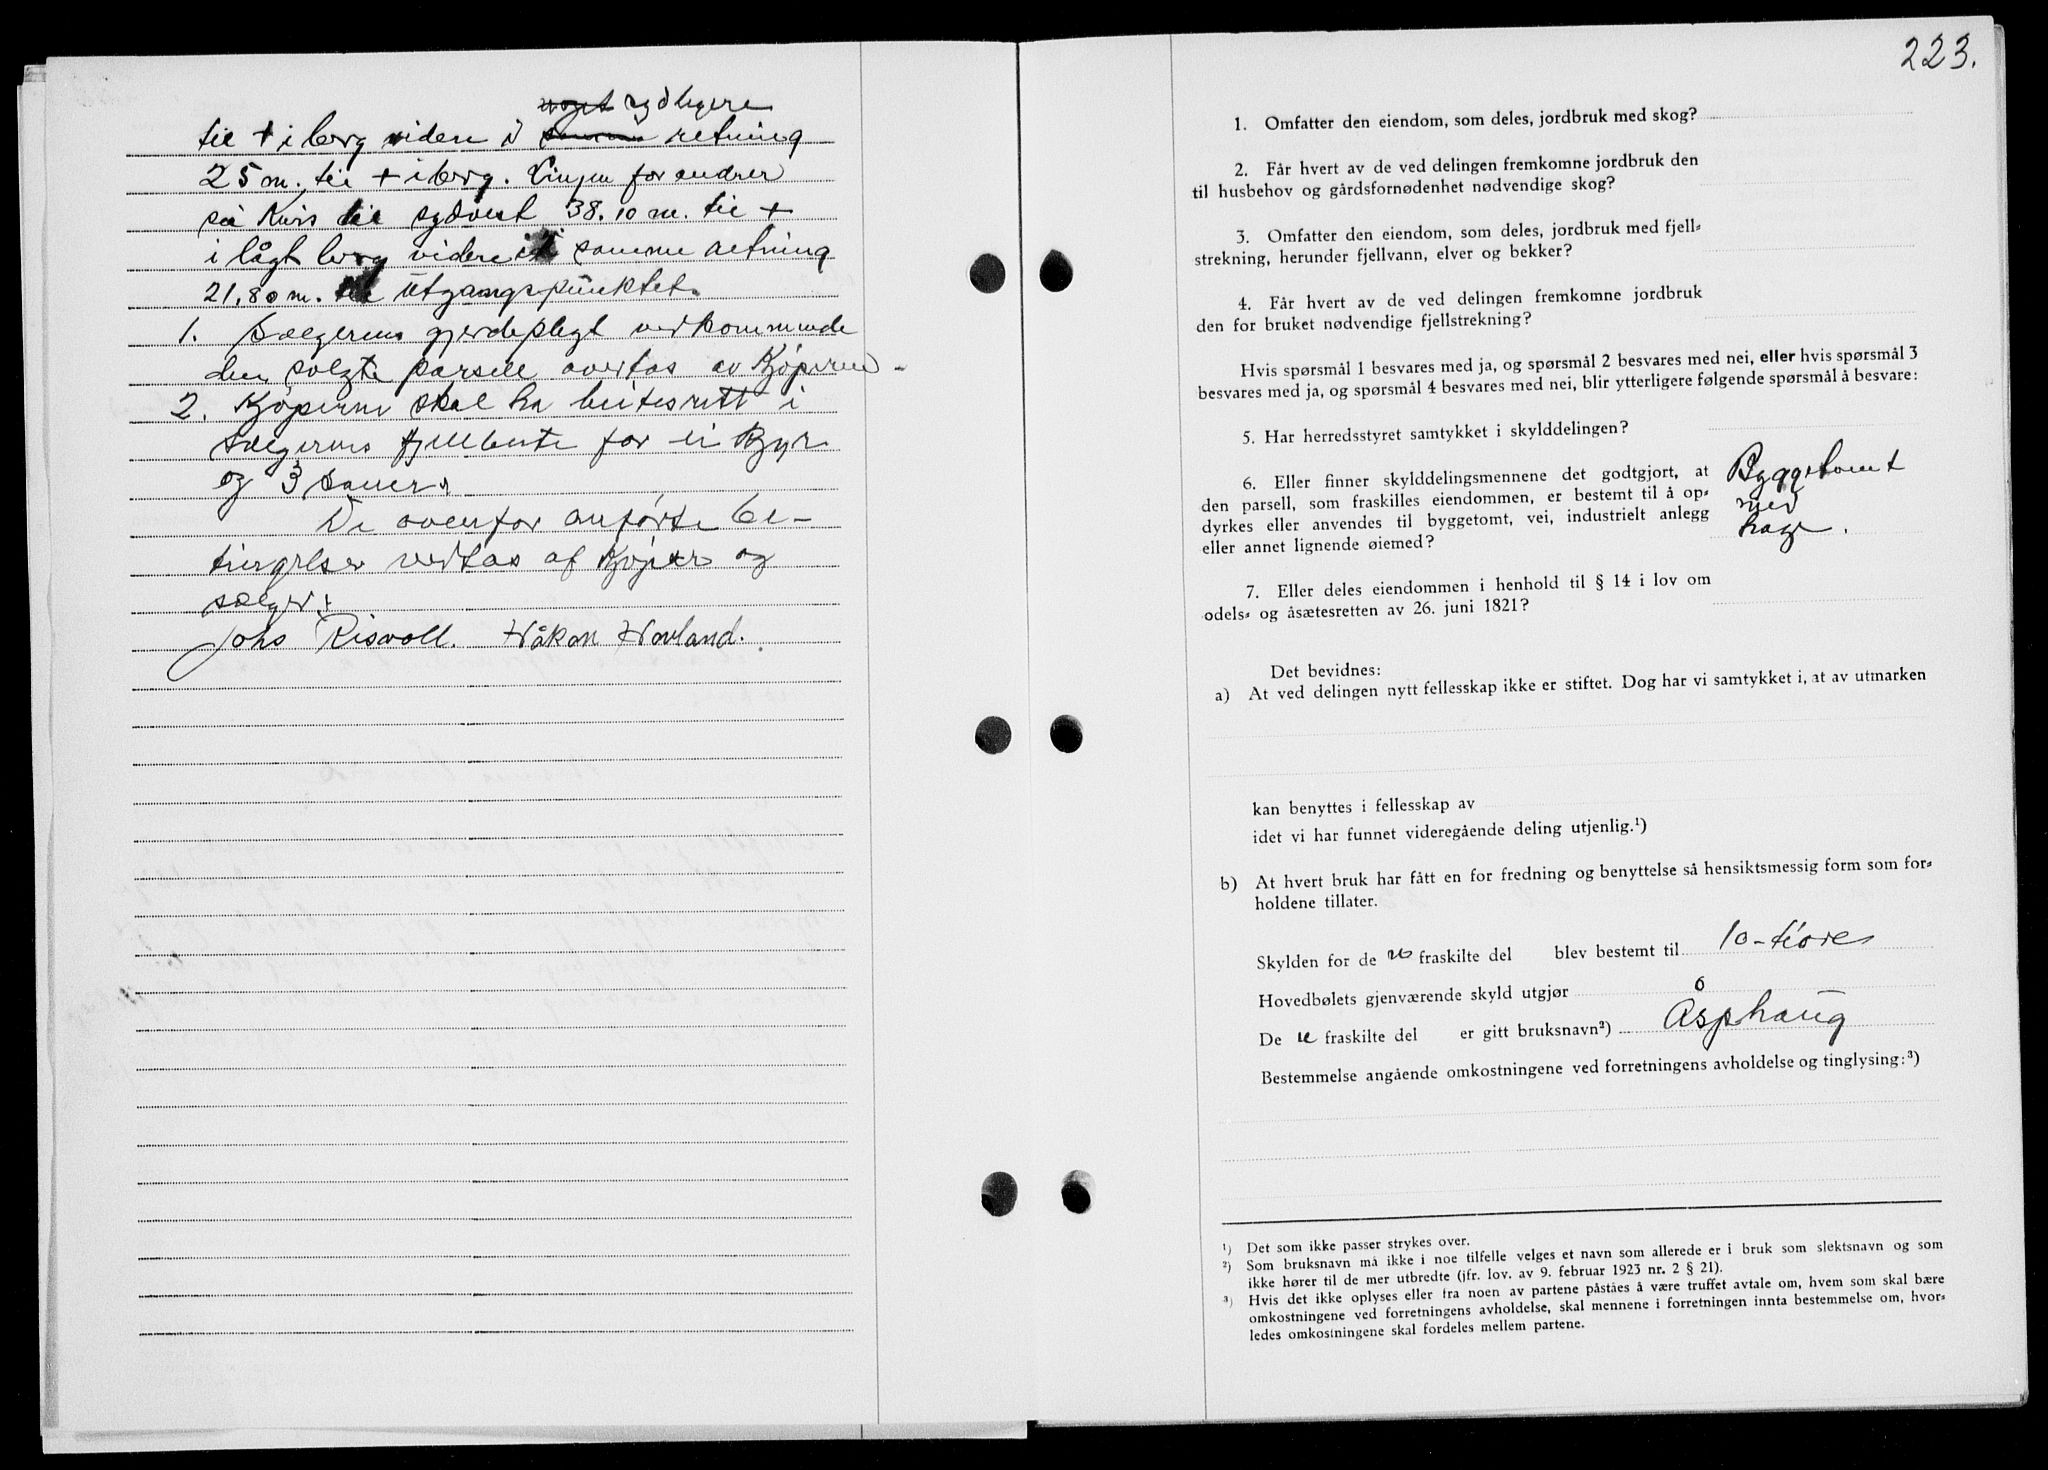 noget sydligere
til + i berg videre i samme retning
25 m. til + i berg. Linjen forandrer
så Kurs til sydvest 38.10 m. til +
i lågt berg videre i samme retning
21,80 m. til Utgangspunktet.
1. Sælgerens gjerdeplegt vedkommende
den solgte parsell overtas av Kjöperen.
2. Kjöperen skal ha beitesrett i
sælgerens fjellbeite for ei Kyr
og 3 sauer.
De ovenfor anförte be-
tingelser vedtas af Kjöper og
sælger.
Johs Risvoll. Håkon Hovland.
223.
1. Omfatter den eiendom, som deles, jordbruk med skog?
2. Får hvert av de ved delingen fremkomne jordbruk den
til husbehov og gårdsfornødenhet nødvendige skog?
3. Omfatter den eiendom, som deles, jordbruk med fjell-
strekning, herunder fjellvann, elver og bekker?
4. Får hvert av de ved delingen fremkomne jordbruk
den for bruket nødvendige fjellstrekning?
Hvis spørsmål 1 besvares med ja, og spørsmål 2 besvares med nei, eller hvis spørsmål 3
besvares med ja, og spørsmål 4 besvares med nei, blir ytterligere følgende spørsmål å besvare:
5. Har herredsstyret samtykket i skylddelingen?
6. Eller finner skylddelingsmennene det godtgjort, at
den parsell, som fraskilles eiendommen, er bestemt til å op-
dyrkes eller anvendes til byggetomt, vei, industrielt anlegg
eller annet lignende øiemed?
Byggetomt
med
hage.
7. Eller deles eiendommen i henhold til § 14 i lov om
odels- og åsætesretten av 26. juni 1821?
Det bevidnes:
a) At ved delingen nytt fellesskap ikke er stiftet. Dog har vi samtykket i, at av utmarken
kan benyttes i fellesskap av
idet vi har funnet videregående deling utjenlig.¹)
b) At hvert bruk har fått en for fredning og benyttelse så hensiktsmessig form som for-
holdene tillater.
Skylden for de n fraskilte del blev bestemt til 10-tiøre
Hovedbølets gjenværende skyld utgjør
De n fraskilte del er gitt bruksnavn²) Åsphaug
Bestemmelse angående omkostningene ved forretningens avholdelse og tinglysing:³)
¹) Det som ikke passer strykes over.
²) Som bruksnavn må ikke i noe tilfelle velges et navn som allerede er i bruk som slektsnavn og som
ikke hører til de mer utbredte (jfr. lov. av 9. februar 1923 nr. 2 § 21).
³) Hvis det ikke oplyses eller fra noen av partene påståes å være truffet avtale om, hvem som skal bære
omkostningene ved forretningens avholdelse, skal mennene i forretningen innta bestemmelse om, hvor-
ledes omkostningene skal fordeles mellem partene.